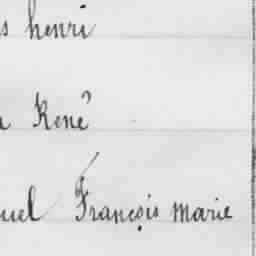 s henri
René
uel François marie